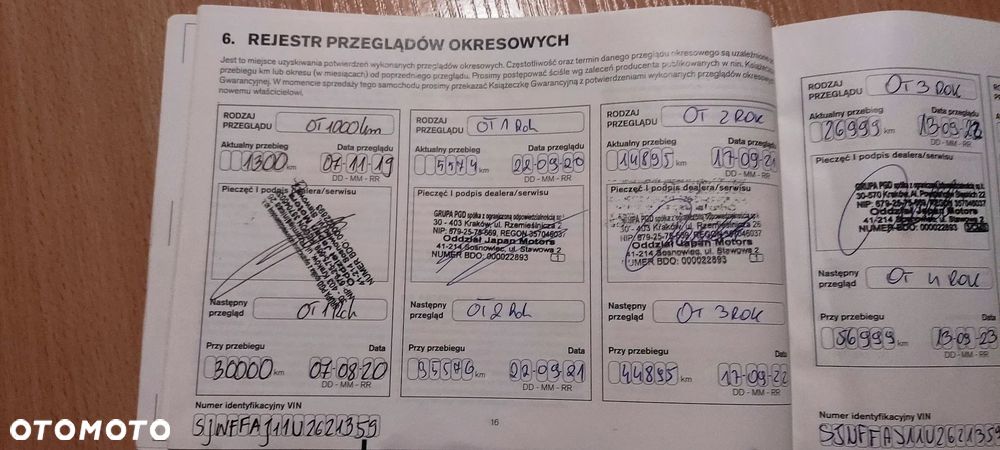 6. REJESTR PRZEGLĄDÓW OKRESOWYCH
Jest to miejsce uzyskiwania potwierdzeń wykonanych przeglądów okresowych. Częstotliwość oraz termin danego przeglądu okresowego są uzależnione
przebiegu km lub okresu (w miesiącach) od poprzedniego przeglądu. Prosimy postępować ściśle wg zaleceń producenta publikowanych w nin. Książeczce
Gwarancyjnej. W momencie sprzedaży tego samochodu prosimy przekazać Książeczkę Gwarancyjną z potwierdzeniami wykonanych przeglądów okresowych
nowemu właścicielowi.
RODZAJ PRZEGLĄDU OT 1000 km
Aktualny przebieg Data przeglądu
1300 km 07-11-19
DD - MM - RR
Pieczęć i podpis dealera/serwisu
Następny przegląd OT 1 Rok
Przy przebiegu Data
30000 km 07-08-20
DD - MM - RR
RODZAJ PRZEGLĄDU OT 1 Rok
Aktualny przebieg Data przeglądu
5574 km 22-09-20
DD - MM - RR
Pieczęć i podpis dealera/serwisu
GRUPA PGD spółka z ograniczoną odpowiedzialnością sp. k.
30 - 403 Kraków, ul. Rzemieślnicza
NIP: 679-25-78-569, REGON 357046037
Oddział Japan Motors
41-214 Sosnowiec, ul. Stawowa 2
NUMER BDO: 000022893 1
Następny przegląd OT 2 Rok
Przy przebiegu Data
35574 km 22-09-21
DD - MM - RR
RODZAJ PRZEGLĄDU OT 2 ROK
Aktualny przebieg Data przeglądu
14895 km 17-09-21
DD - MM - RR
Pieczęć i podpis dealera/serwisu
GRUPA PGD spółka z ograniczoną odpowiedzialnością sp. k.
30 - 403 Kraków, ul. Rzemieślnicza 26
Oddział Japan Motors
41-214 Sosnowiec, ul. Stawowa 2
NUMER BDO: 000022893 1
Następny przegląd OT 3 ROK
Przy przebiegu Data
44895 km 17-09-22
DD - MM - RR
Numer identyfikacyjny VIN
SJNFFAJ11U2621359
16
RODZAJ PRZEGLĄDU OT 3 ROK
Aktualny przebieg Data przeglądu
26999 km 13-09-22
DD - MM - RR
Pieczęć i podpis dealera/serwisu
Oddział Japan Motors
41-214 Sosnowiec, ul. Stawowa 2
NUMER BDO: 000022893
Następny przegląd OT 4 ROK
Przy przebiegu Data
56999 km 13-09-23
DD - MM - RR
Numer identyfikacyjny VIN
SJNFFAJ11U2621359
OTOMOTO